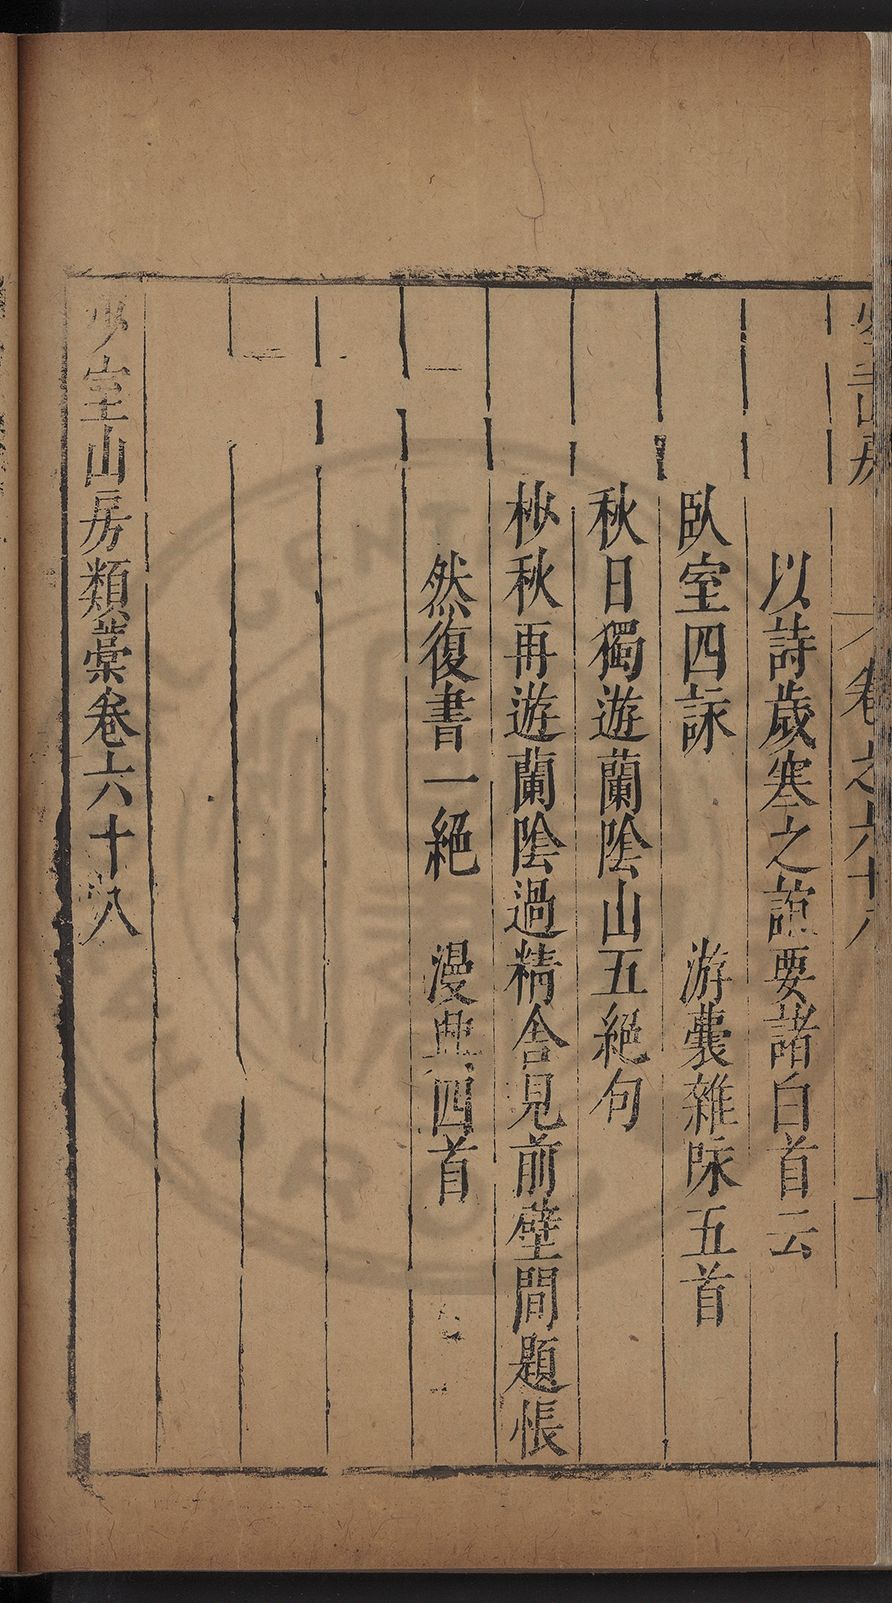 山房 卷之六十八 一
以詩歲寒之誼要諸白首云
臥室四詠 游囊雜咏五首
秋日獨遊蘭陰山五絕句
杪秋再遊蘭陰過精舍見前壁間題悵
然復書一絕 漫興四首
少室山房類藁卷六十八